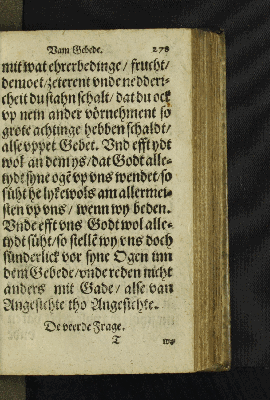 Vam Gebede. 278
mit wat ehrerbedinge / frucht /
demoet / zeterent vnde nedderi-
cheit du stahn schalt / dat du ock
vp nein ander vörnehment so
grote achtinge hebben schaldt /
alse vppet Gebet. Vnd efft ydt
wol an dem ys / dat Godt alle-
tydt syne ogē vp vns wendet so
süht he lykewols am allermei-
sten vp vns / wenn wy beden.
Vnde efft vns Godt wol alle-
tydt süht / so stellē wy vns doch
sünderlick vor syne Ogen im
dem Gebede / vnde reden nicht
anders mit Gade / alse van
Angesichte tho Angesichte.
De veerde Frage.
T wy